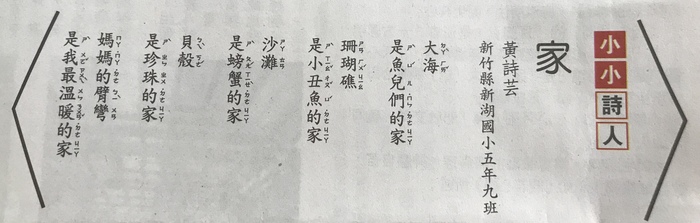 小小詩人
家
黃詩芸
新竹縣新湖國小五年九班
大海
是魚兒們的家
珊瑚礁
是小丑魚的家
沙灘
是螃蟹的家
貝殼
是珍珠的家
媽媽的臂彎
是我最溫暖的家